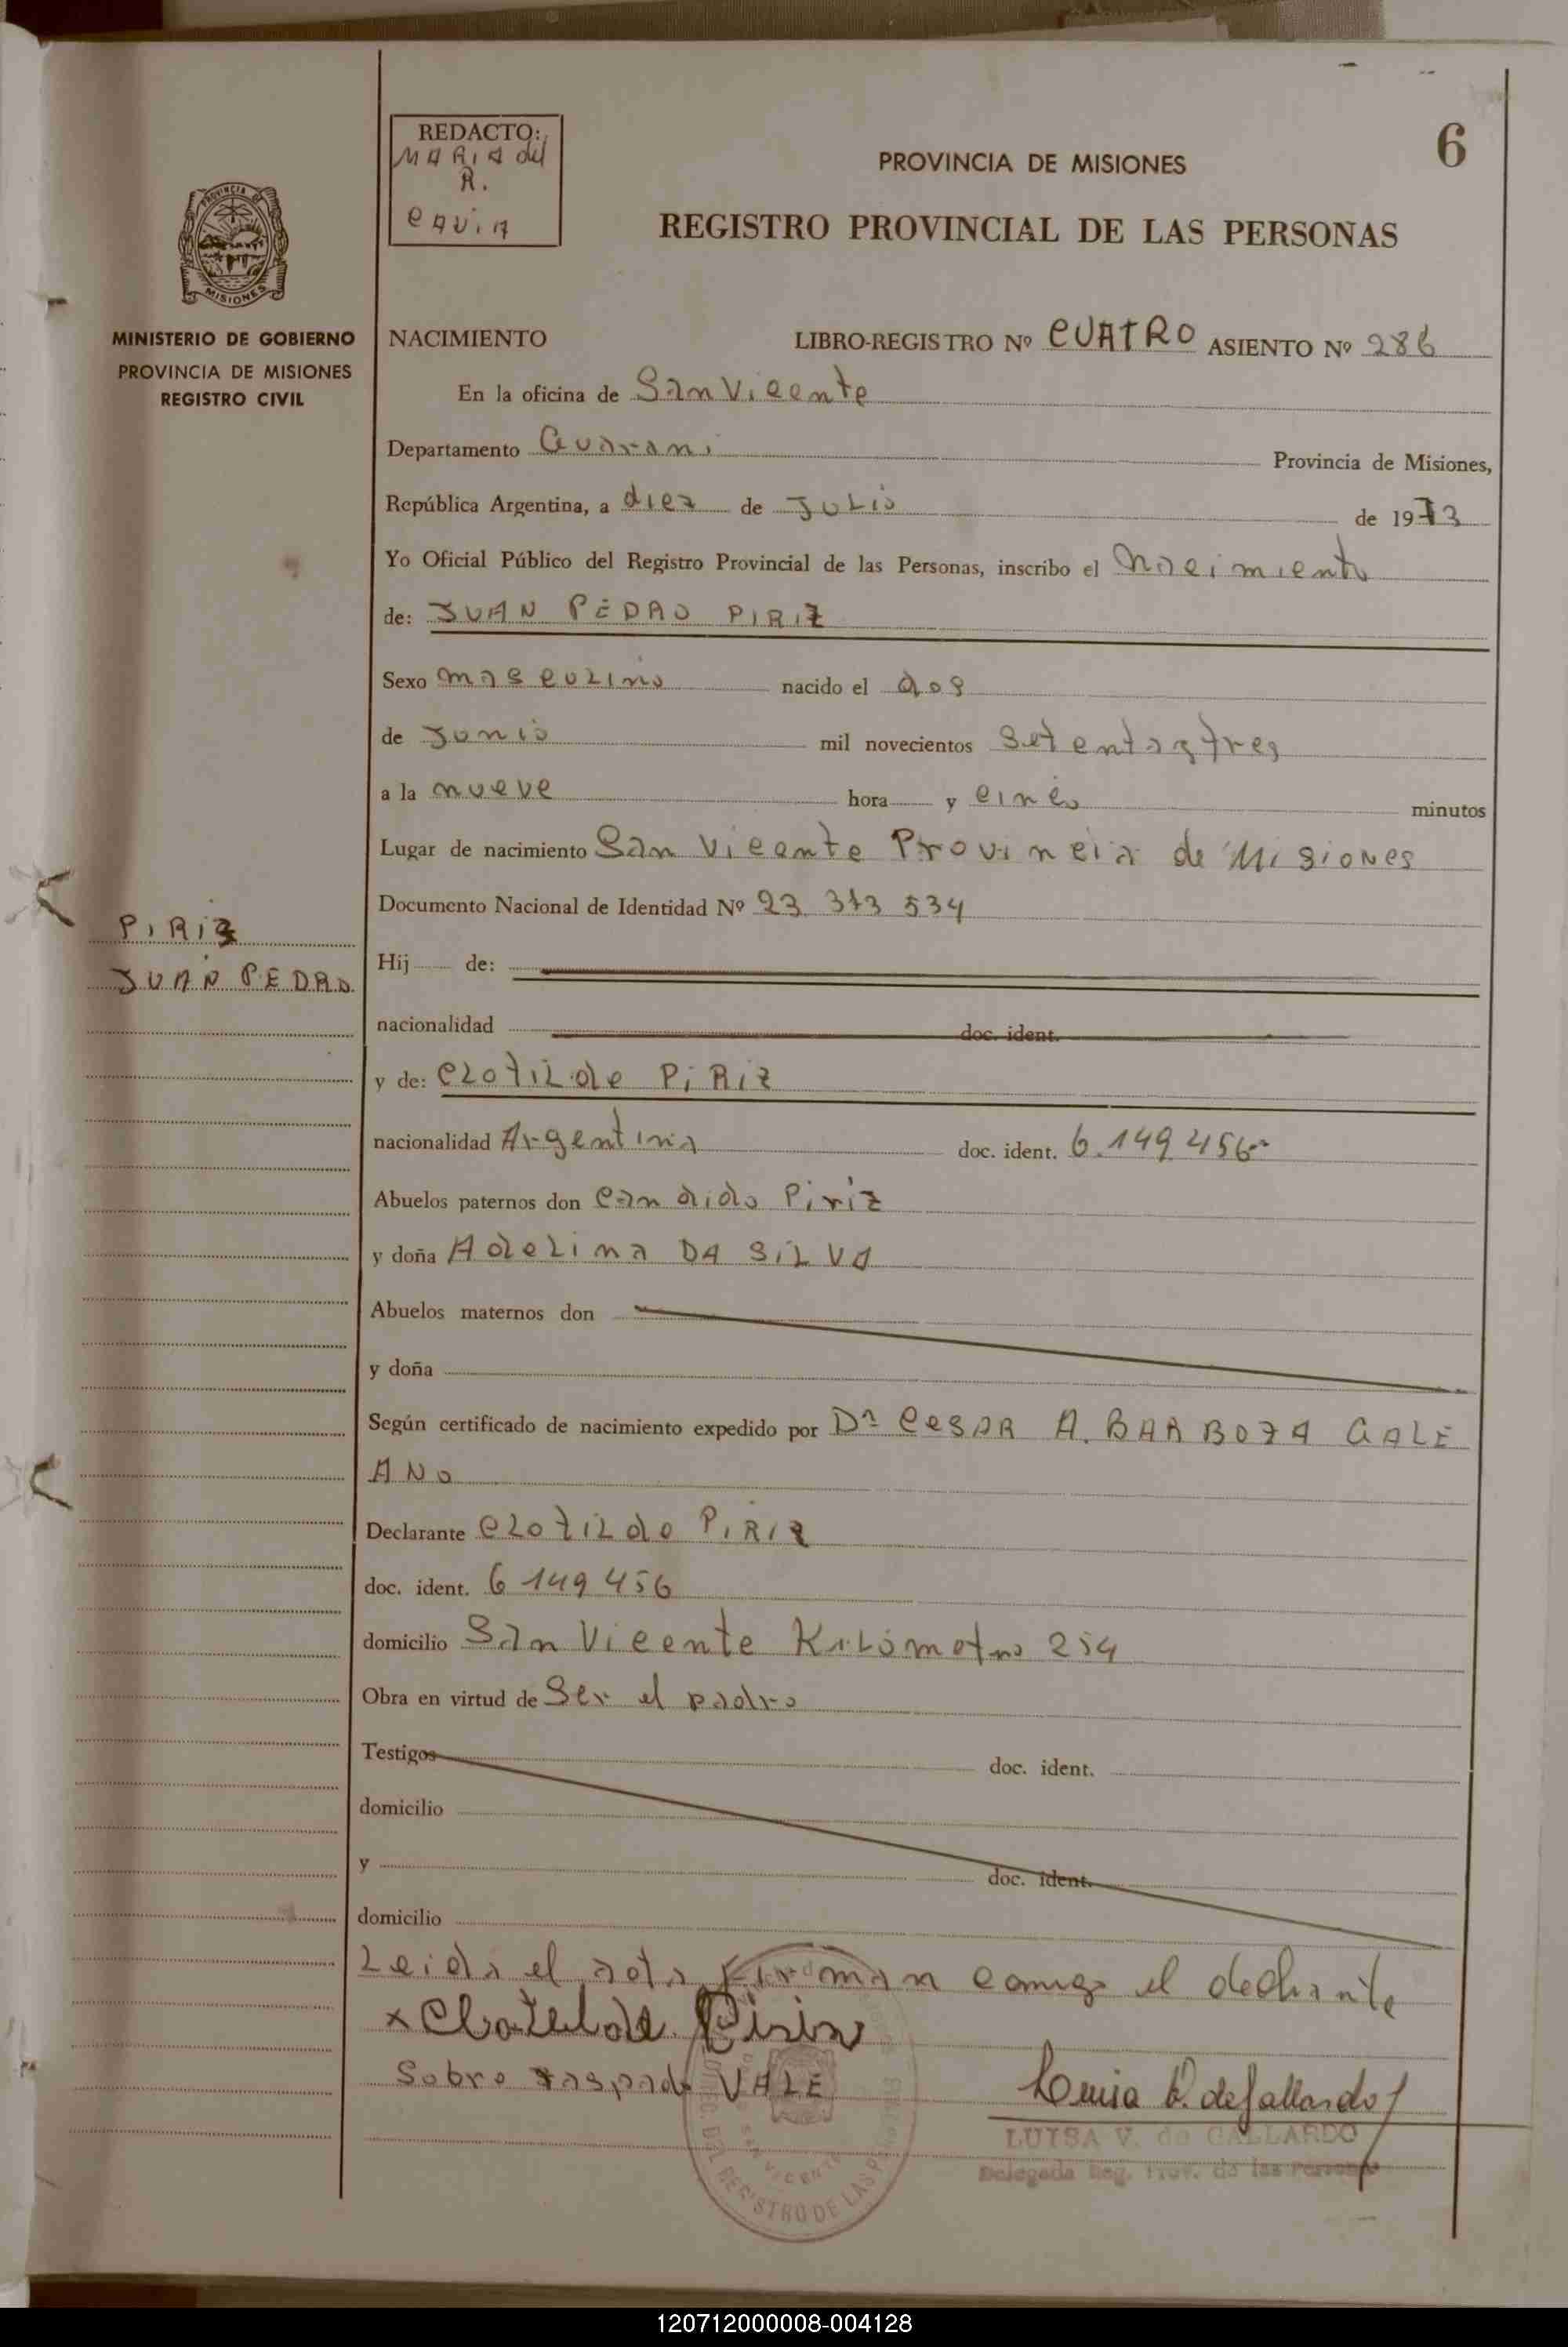 6
REDACTO:
MARIA del
R.
PROVINCIA DE MISIONES
REGISTRO PROVINCIAL DE LAS PERSONAS
PROVINCIA DE
MISIONES
MINISTERIO DE GOBIERNO
PROVINCIA DE MISIONES
REGISTRO CIVIL
NACIMIENTO LIBRO-REGISTRO Nº CUATRO ASIENTO Nº 286
En la oficina de San Vicente
Departamento Guarani Provincia de Misiones,
República Argentina, a diez de Julio de 1973
Yo Oficial Público del Registro Provincial de las Personas, inscribo el Nacimiento
de: JUAN PEDRO PIRIZ
Sexo masculino nacido el dos
de Junio mil novecientos setenta y tres
a la nueve hora y cinco minutos
Lugar de nacimiento San Vicente Provincia de Misiones
Documento Nacional de Identidad Nº 23 373 534
PIRIZ
JUAN PEDRO
Hij de:
nacionalidad doc. ident.
y de: CLOTILde PiRiz
nacionalidad Argentina doc. ident. 6.149 456
Abuelos paternos don Candido Piriz
y doña Adelina DA SILVA
Abuelos maternos don
y doña
Según certificado de nacimiento expedido por Dr CESAR A. BARBOZA GALE
ANO
Declarante CLOTILDE PIRIZ
doc. ident. 6 149 456
domicilio San Vicente Kilometro 254
Obra en virtud de Ser el padre
Testigos doc. ident.
domicilio
y doc. ident.
domicilio
Leida el acta, Firman comigo el dechante
x Clotilde Piriz
Sobre raspado VALE
Luisa V. de Gallardo
LUISA V. de GALLARDO
Delegada Reg. Prov. de las Personas
SAN VICENTE
REGISTRO DE LAS
120712000008-004128